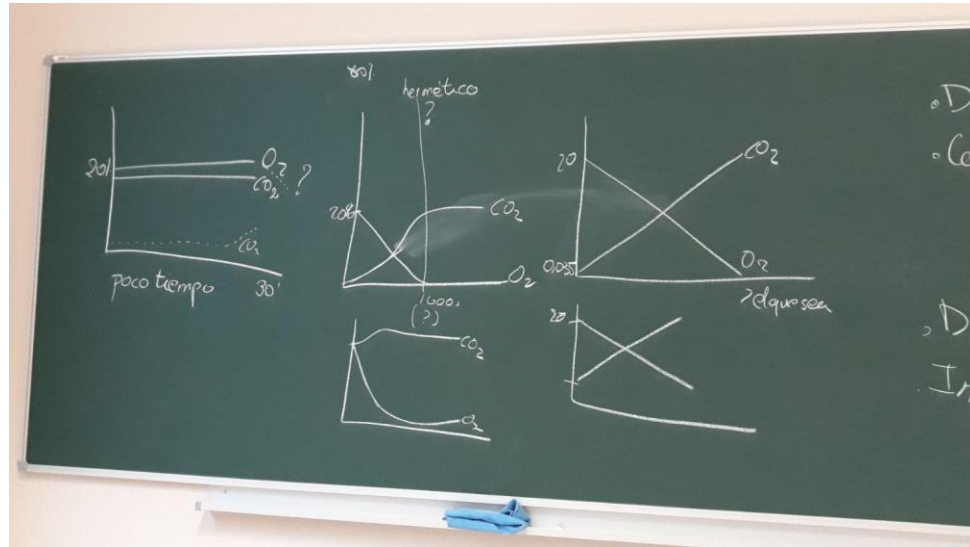 20%
O2
CO2
?
CO2
poco tiempo 30'
80%
hermético
?
20%
CO2
O2
1000
(?)
CO2
O2
20
CO2
0,035
O2
> el que sea
20
. D
. Co
. D
. In